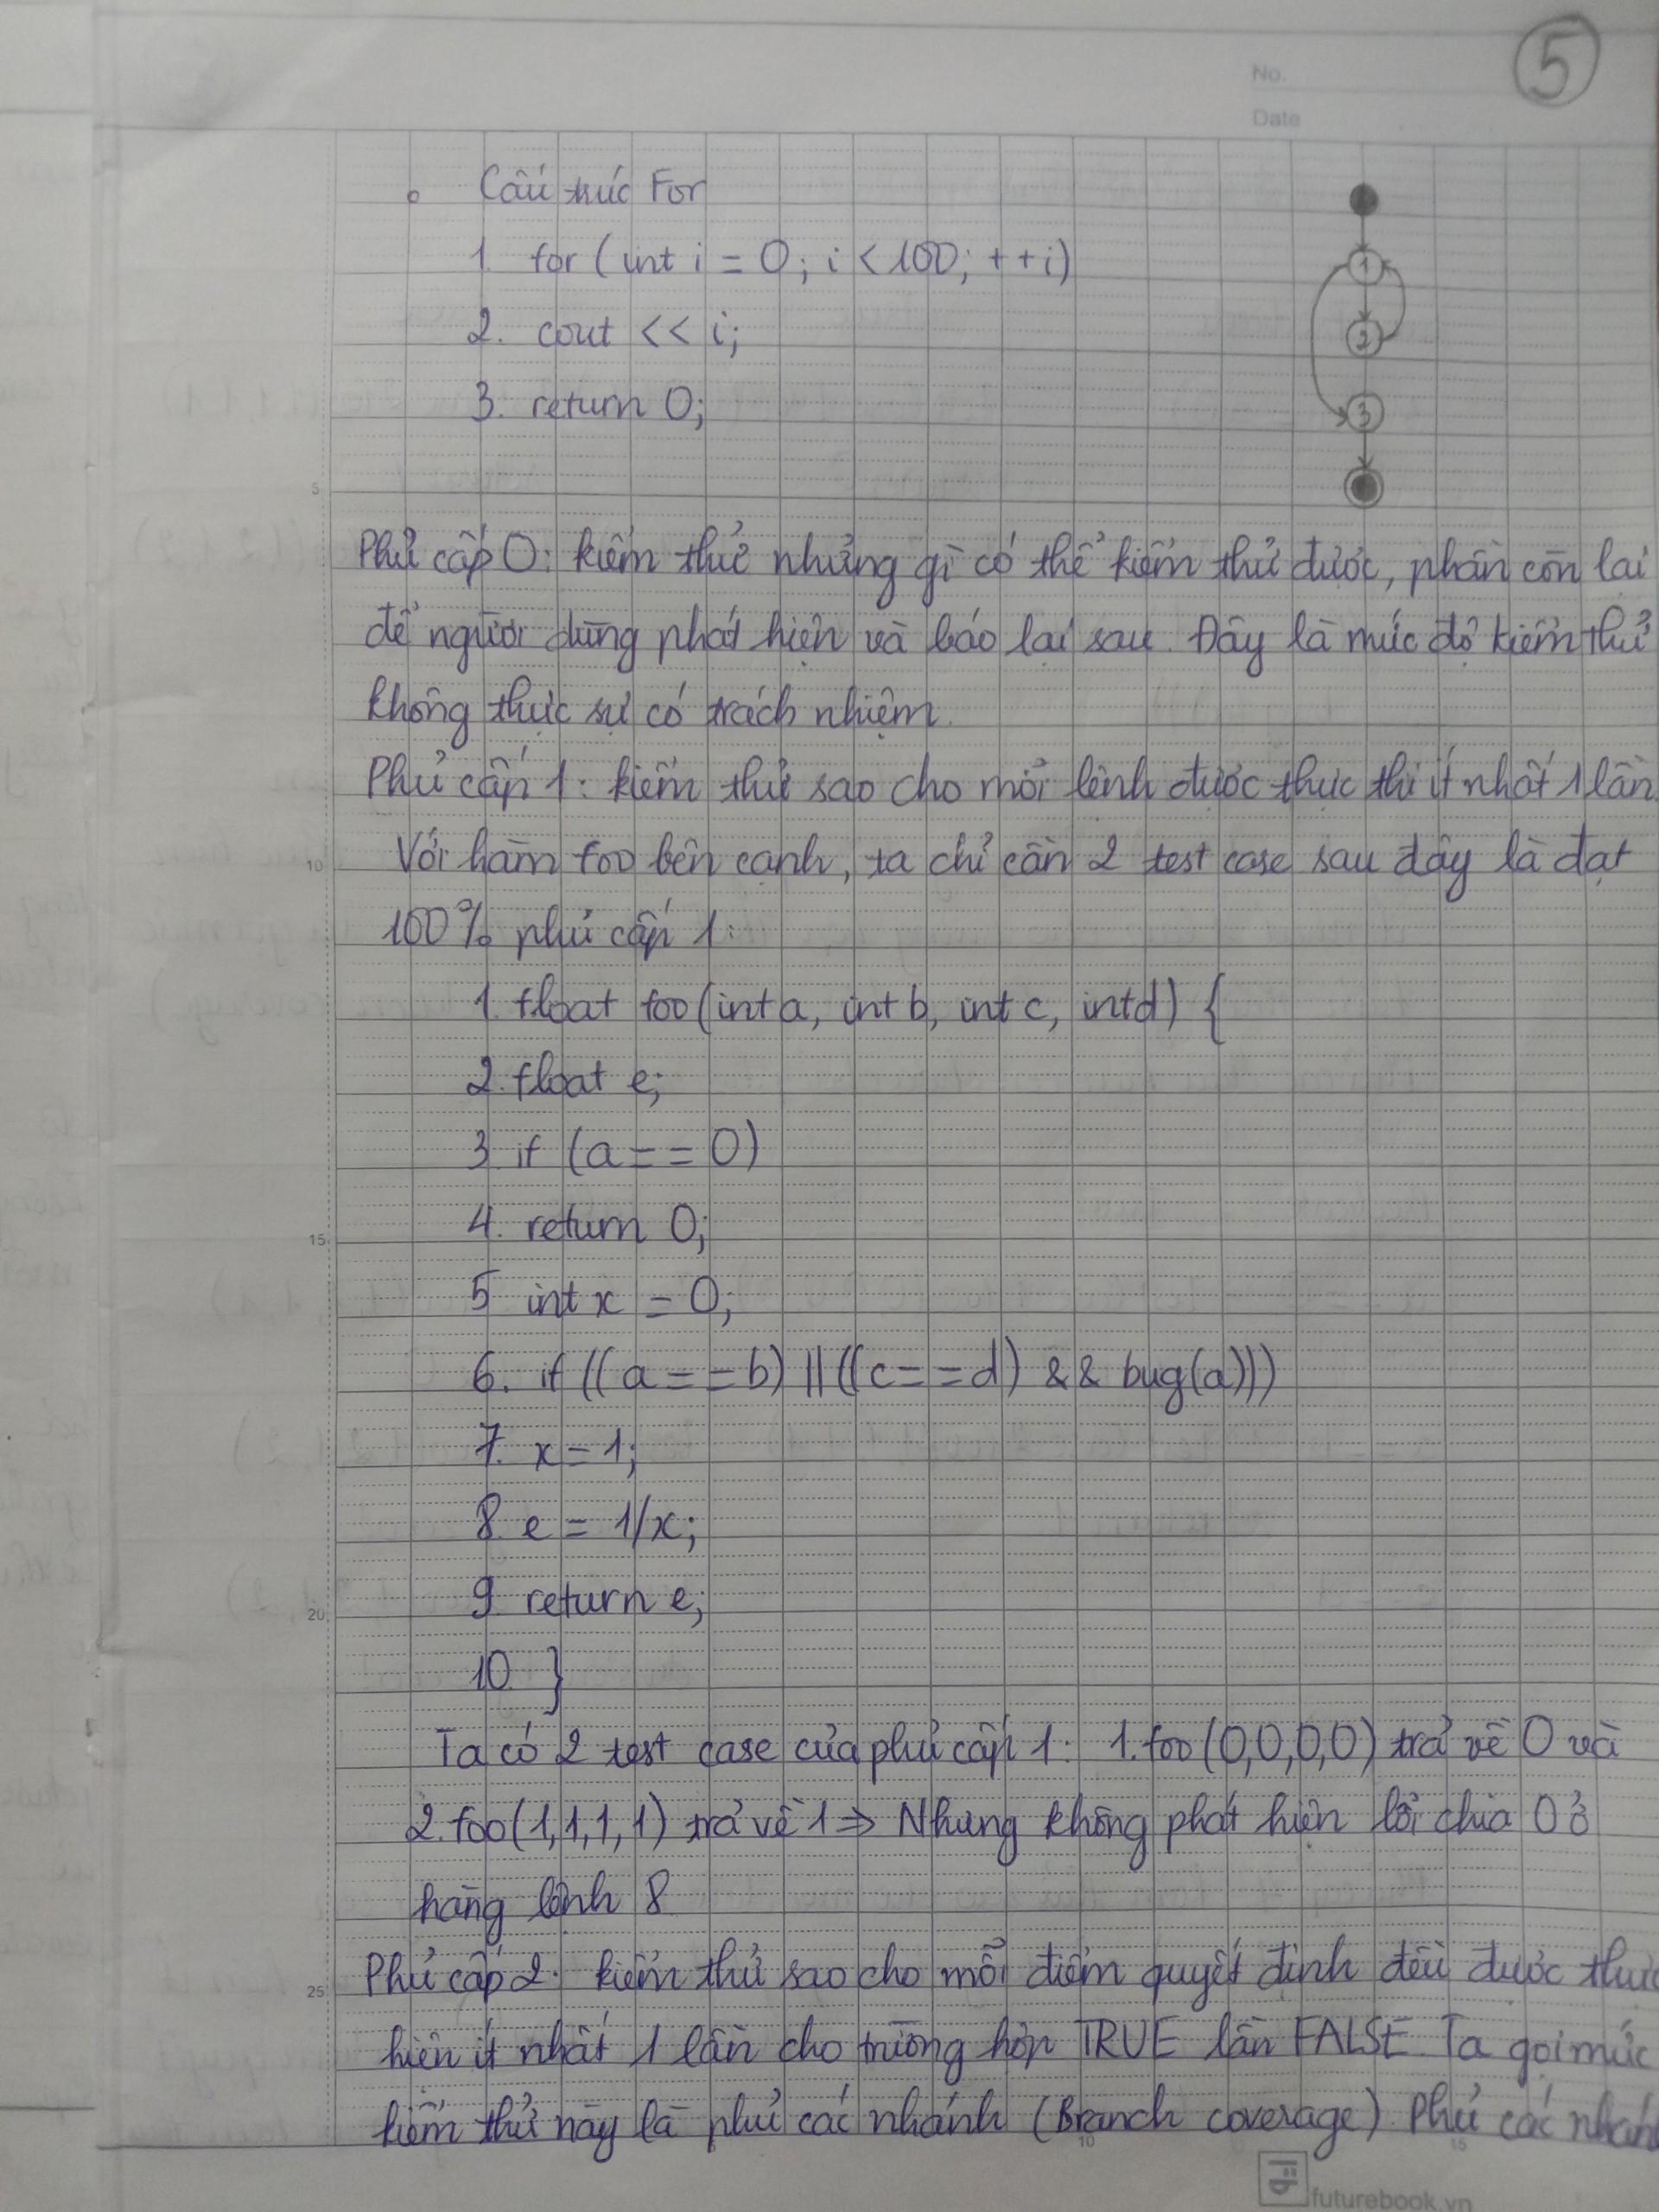 5
No.
Date
Cấu trúc For
1. for (int i = 0; i < 100; ++i)
2. cout << i;
3. return 0;
1
2
3
5
Phủ cấp 0: kiểm thử những gì có thể kiểm thử được, phần còn lại
để người dùng phát hiện và báo lại sau. Đây là mức độ kiểm thử
không thực sự có trách nhiệm.
Phủ cấp 1: kiểm thử sao cho mỗi lệnh được thực thi ít nhất 1 lần.
10
Với hàm foo bên cạnh, ta chỉ cần 2 test case sau đây là đạt
100% phủ cấp 1:
1. float foo (int a, int b, int c, int d) {
2. float e;
3. if (a == 0)
15
4. return 0;
5 int x = 0;
6. if ((a == b) || ((c == d) && bug(a)))
7. x = 1;
8. e = 1/x;
20
9. return e;
10. }
Ta có 2 test case của phủ cấp 1: 1. foo (0,0,0,0) trả về 0 và
2. foo (1,1,1,1) trả về 1 => Nhưng không phát hiện lỗi chia 0 ở
hàng lệnh 8
25
Phủ cấp 2: kiểm thử sao cho mỗi điểm quyết định đều được thực
hiện ít nhất 1 lần cho trường hợp TRUE lẫn FALSE. Ta gọi mức
kiểm thử này là phủ các nhánh (Branch coverage). Phủ các nhánh
10
15
futurebook.vn